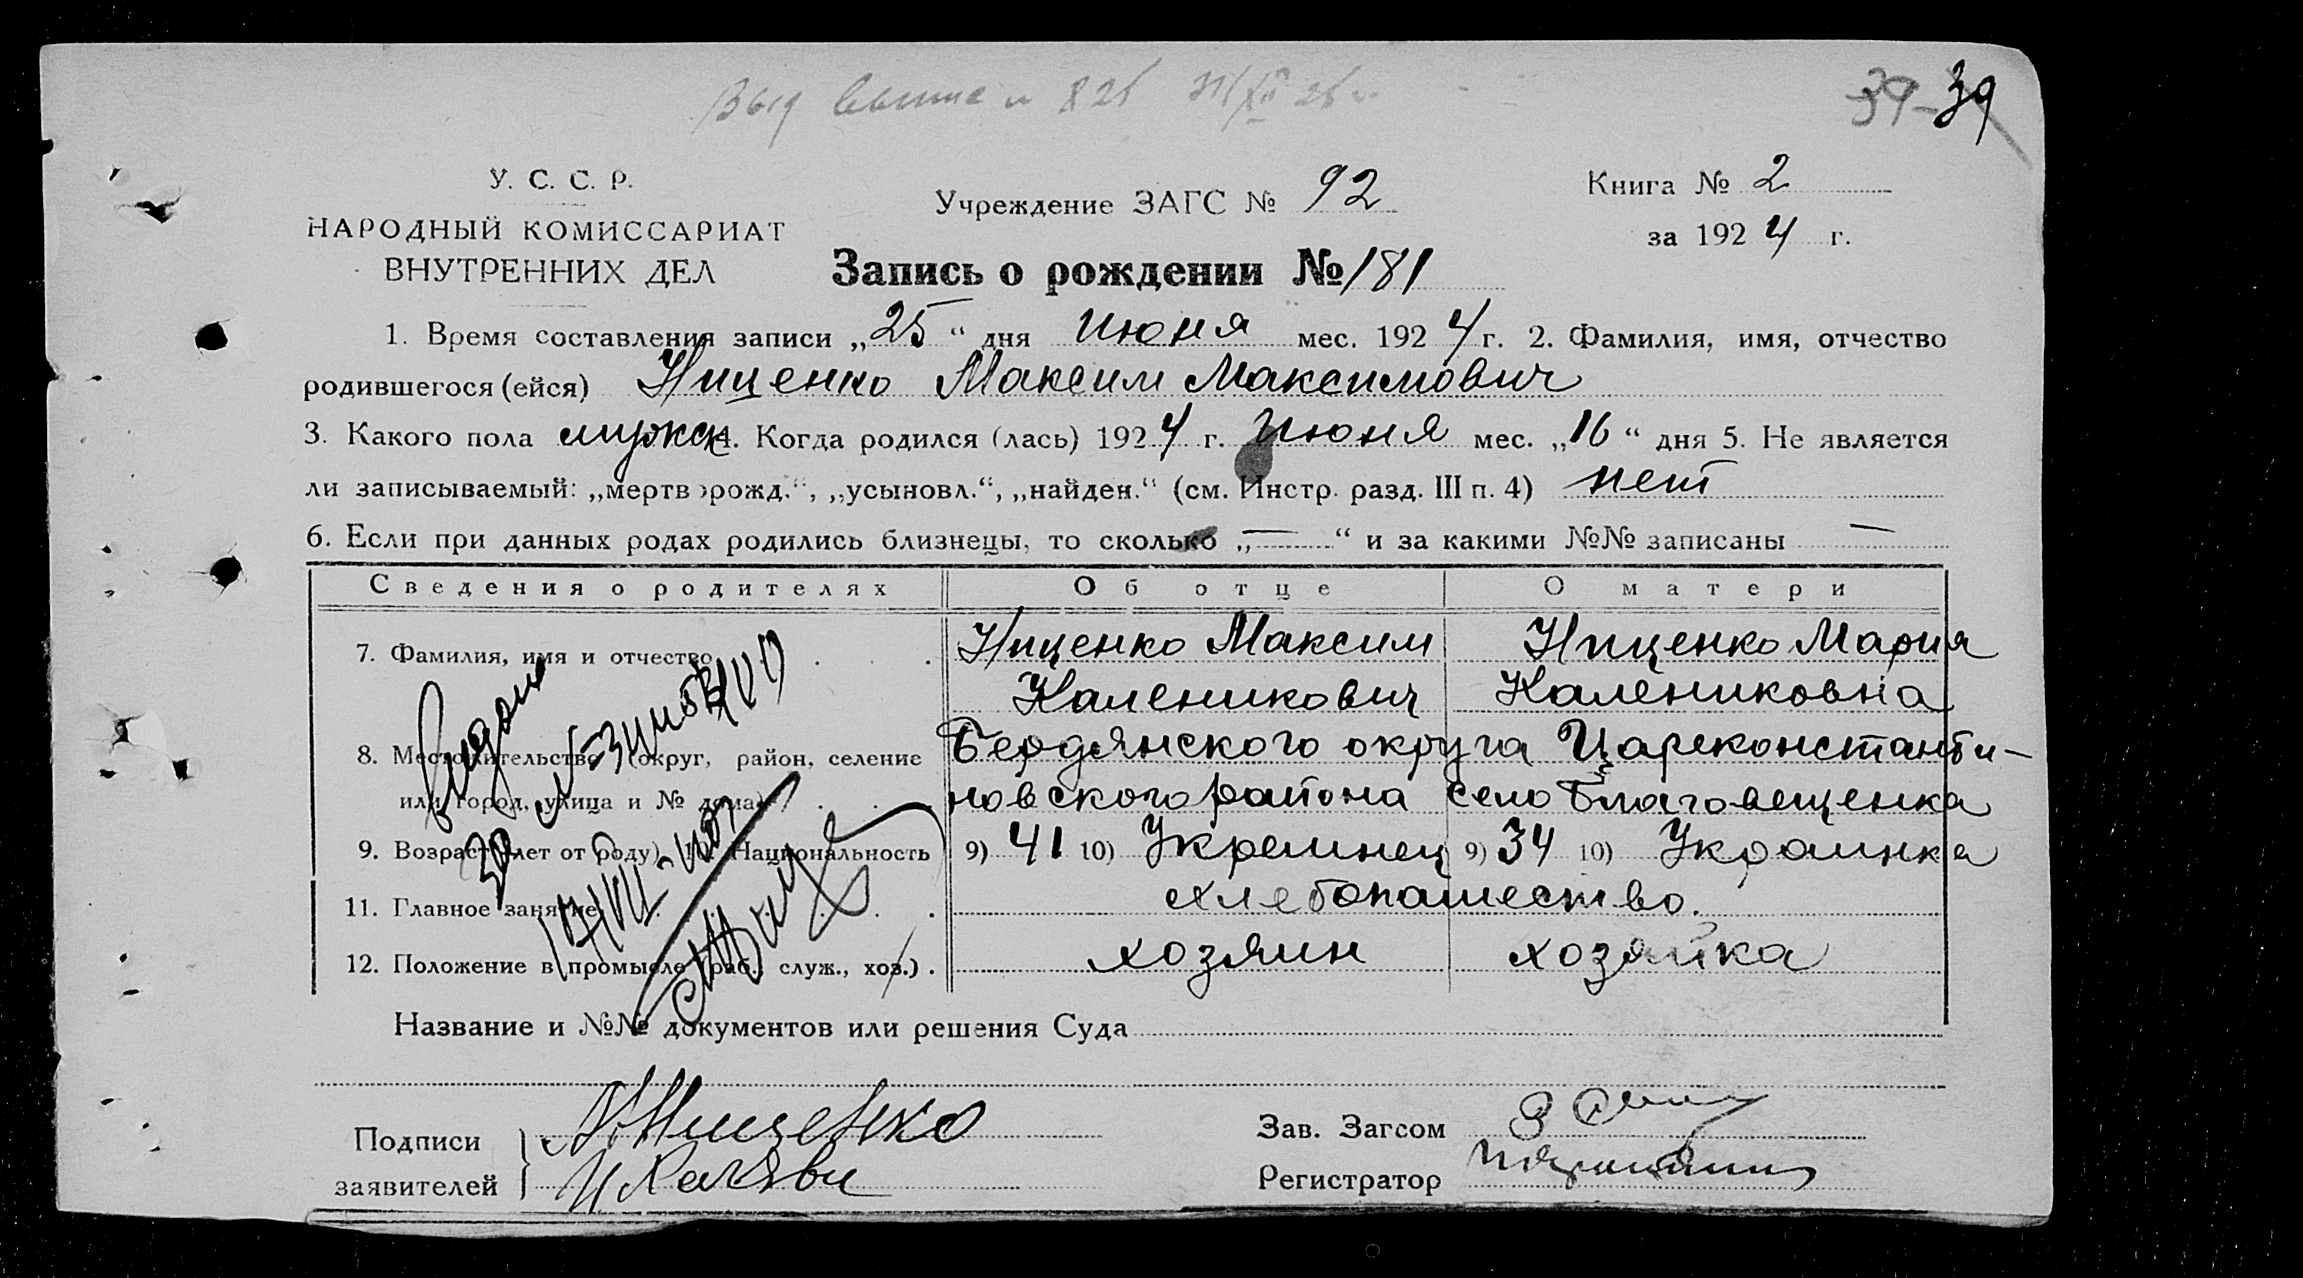 39 39
У. С. С. Р.
НАРОДНЫЙ КОМИССАРИАТ
ВНУТРЕННИХ ДЕЛ
Учреждение ЗАГС № 92
Книга № 2
за 1924 г.
Запись о рождении № 181
1. Время составления записи „25“ дня Июня мес. 1924 г. 2. Фамилия, имя, отчество
родившегося (ейся) Ниценко Максим Максимович
3. Какого пола мужск 4. Когда родился (лась) 1924 г. Июня мес. „16“ дня 5. Не является
ли записываемый: „мертворожд.“, „усыновл.“, „найден.“ (см. Инстр. разд. III п. 4) нет
6. Если при данных родах родились близнецы, то сколько „—“ и за какими №№ записаны —
Сведения о родителях Об отце О матери
7. Фамилия, имя и отчество Ниценко Максим Ниценко Мария
Каленикович Калениковна
8. Местожительство (округ, район, селение Бердянского округа Цареконстанти-
или город, улица и № дома) новского района село Благовещенка
9. Возраст (лет от роду) 10. Национальность 9) 41 10) Украинец 9) 34 10) Украинка
11. Главное занятие хлебопашество.
12. Положение в промысле (раб., служ., хоз.) хозяин хозяйка
Название и №№ документов или решения Суда
Подписи Ниценко
заявителей
Зав. Загсом
Регистратор